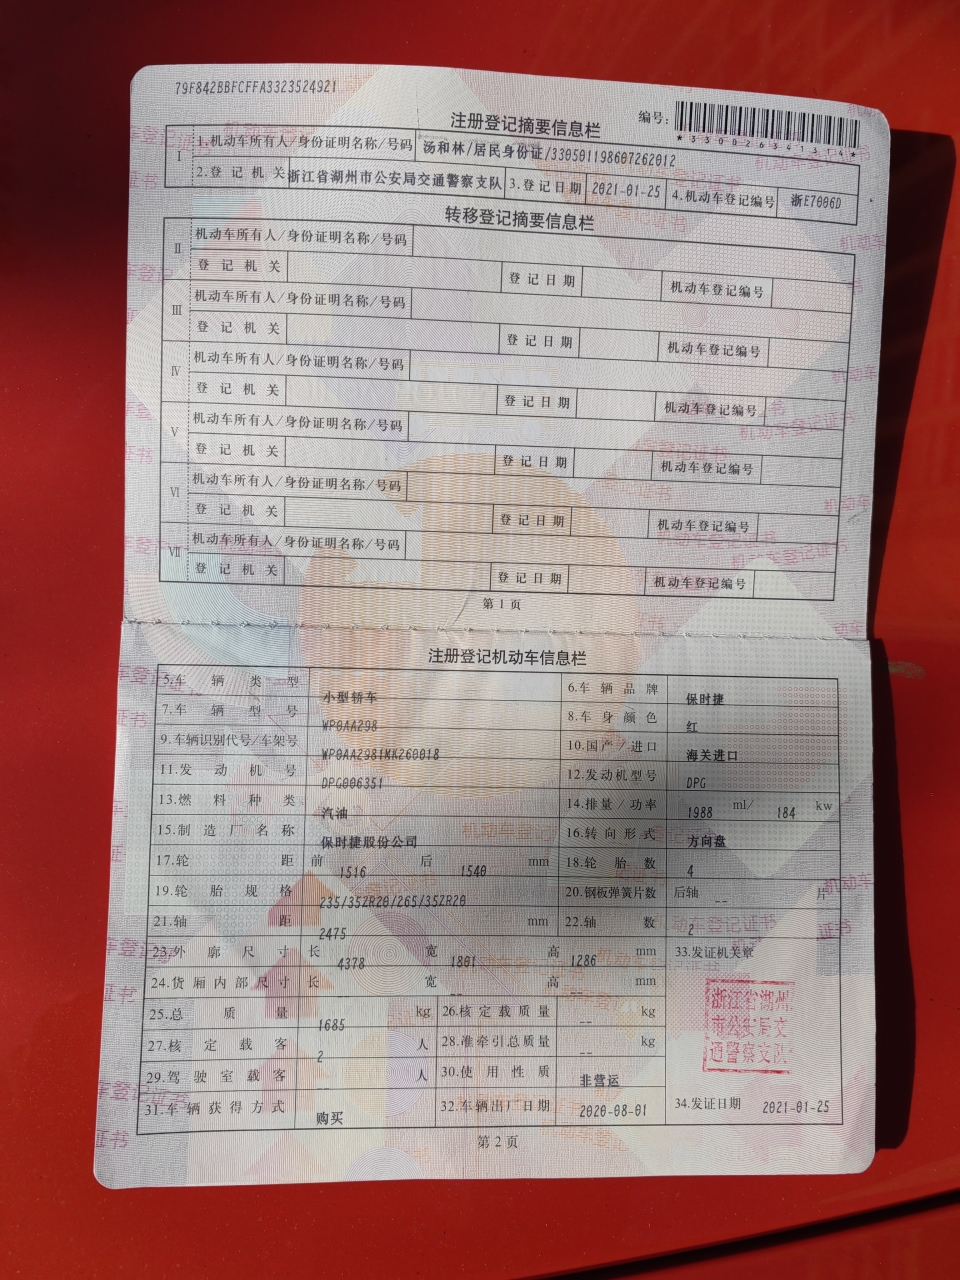 79F842BBFCFFA3323524921
注册登记摘要信息栏
编号:
*330026341314*
I 1.机动车所有人/身份证明名称/号码 汤和林/居民身份证/330501198607262012
2.登记机关 浙江省湖州市公安局交通警察支队 3.登记日期 2021-01-25 4.机动车登记编号 浙E7006D
转移登记摘要信息栏
II 机动车所有人/身份证明名称/号码
登记机关 登记日期 机动车登记编号
III 机动车所有人/身份证明名称/号码
登记机关 登记日期 机动车登记编号
IV 机动车所有人/身份证明名称/号码
登记机关 登记日期 机动车登记编号
V 机动车所有人/身份证明名称/号码
登记机关 登记日期 机动车登记编号
VI 机动车所有人/身份证明名称/号码
登记机关 登记日期 机动车登记编号
VII 机动车所有人/身份证明名称/号码
登记机关 登记日期 机动车登记编号
第1页
注册登记机动车信息栏
5.车辆类型 小型轿车 6.车辆品牌 保时捷
7.车辆型号 WP0AA298 8.车身颜色 红
9.车辆识别代号/车架号 WP0AA2981MK260018 10.国产/进口 海关进口
11.发动机号 DPG006351 12.发动机型号 DPG
13.燃料种类 汽油 14.排量/功率 1988 ml/ 184 kw
15.制造厂名称 保时捷股份公司 16.转向形式 方向盘
17.轮距 前 1516 后 1540 mm 18.轮胎数 4
19.轮胎规格 235/35ZR20/265/35ZR20 20.钢板弹簧片数 后轴 -- 片
21.轴距 2475 mm 22.轴数 2
23.外廓尺寸 长 4378 宽 1801 高 1286 mm 33.发证机关章
24.货厢内部尺寸 长 宽 -- 高 -- mm
浙江省湖州
市公安局交
通警察支队
25.总质量 1685 kg 26.核定载质量 -- kg
27.核定载客 2 人 28.准牵引总质量 -- kg
29.驾驶室载客 -- 人 30.使用性质 非营运
31.车辆获得方式 购买 32.车辆出厂日期 2020-08-01 34.发证日期 2021-01-25
第2页